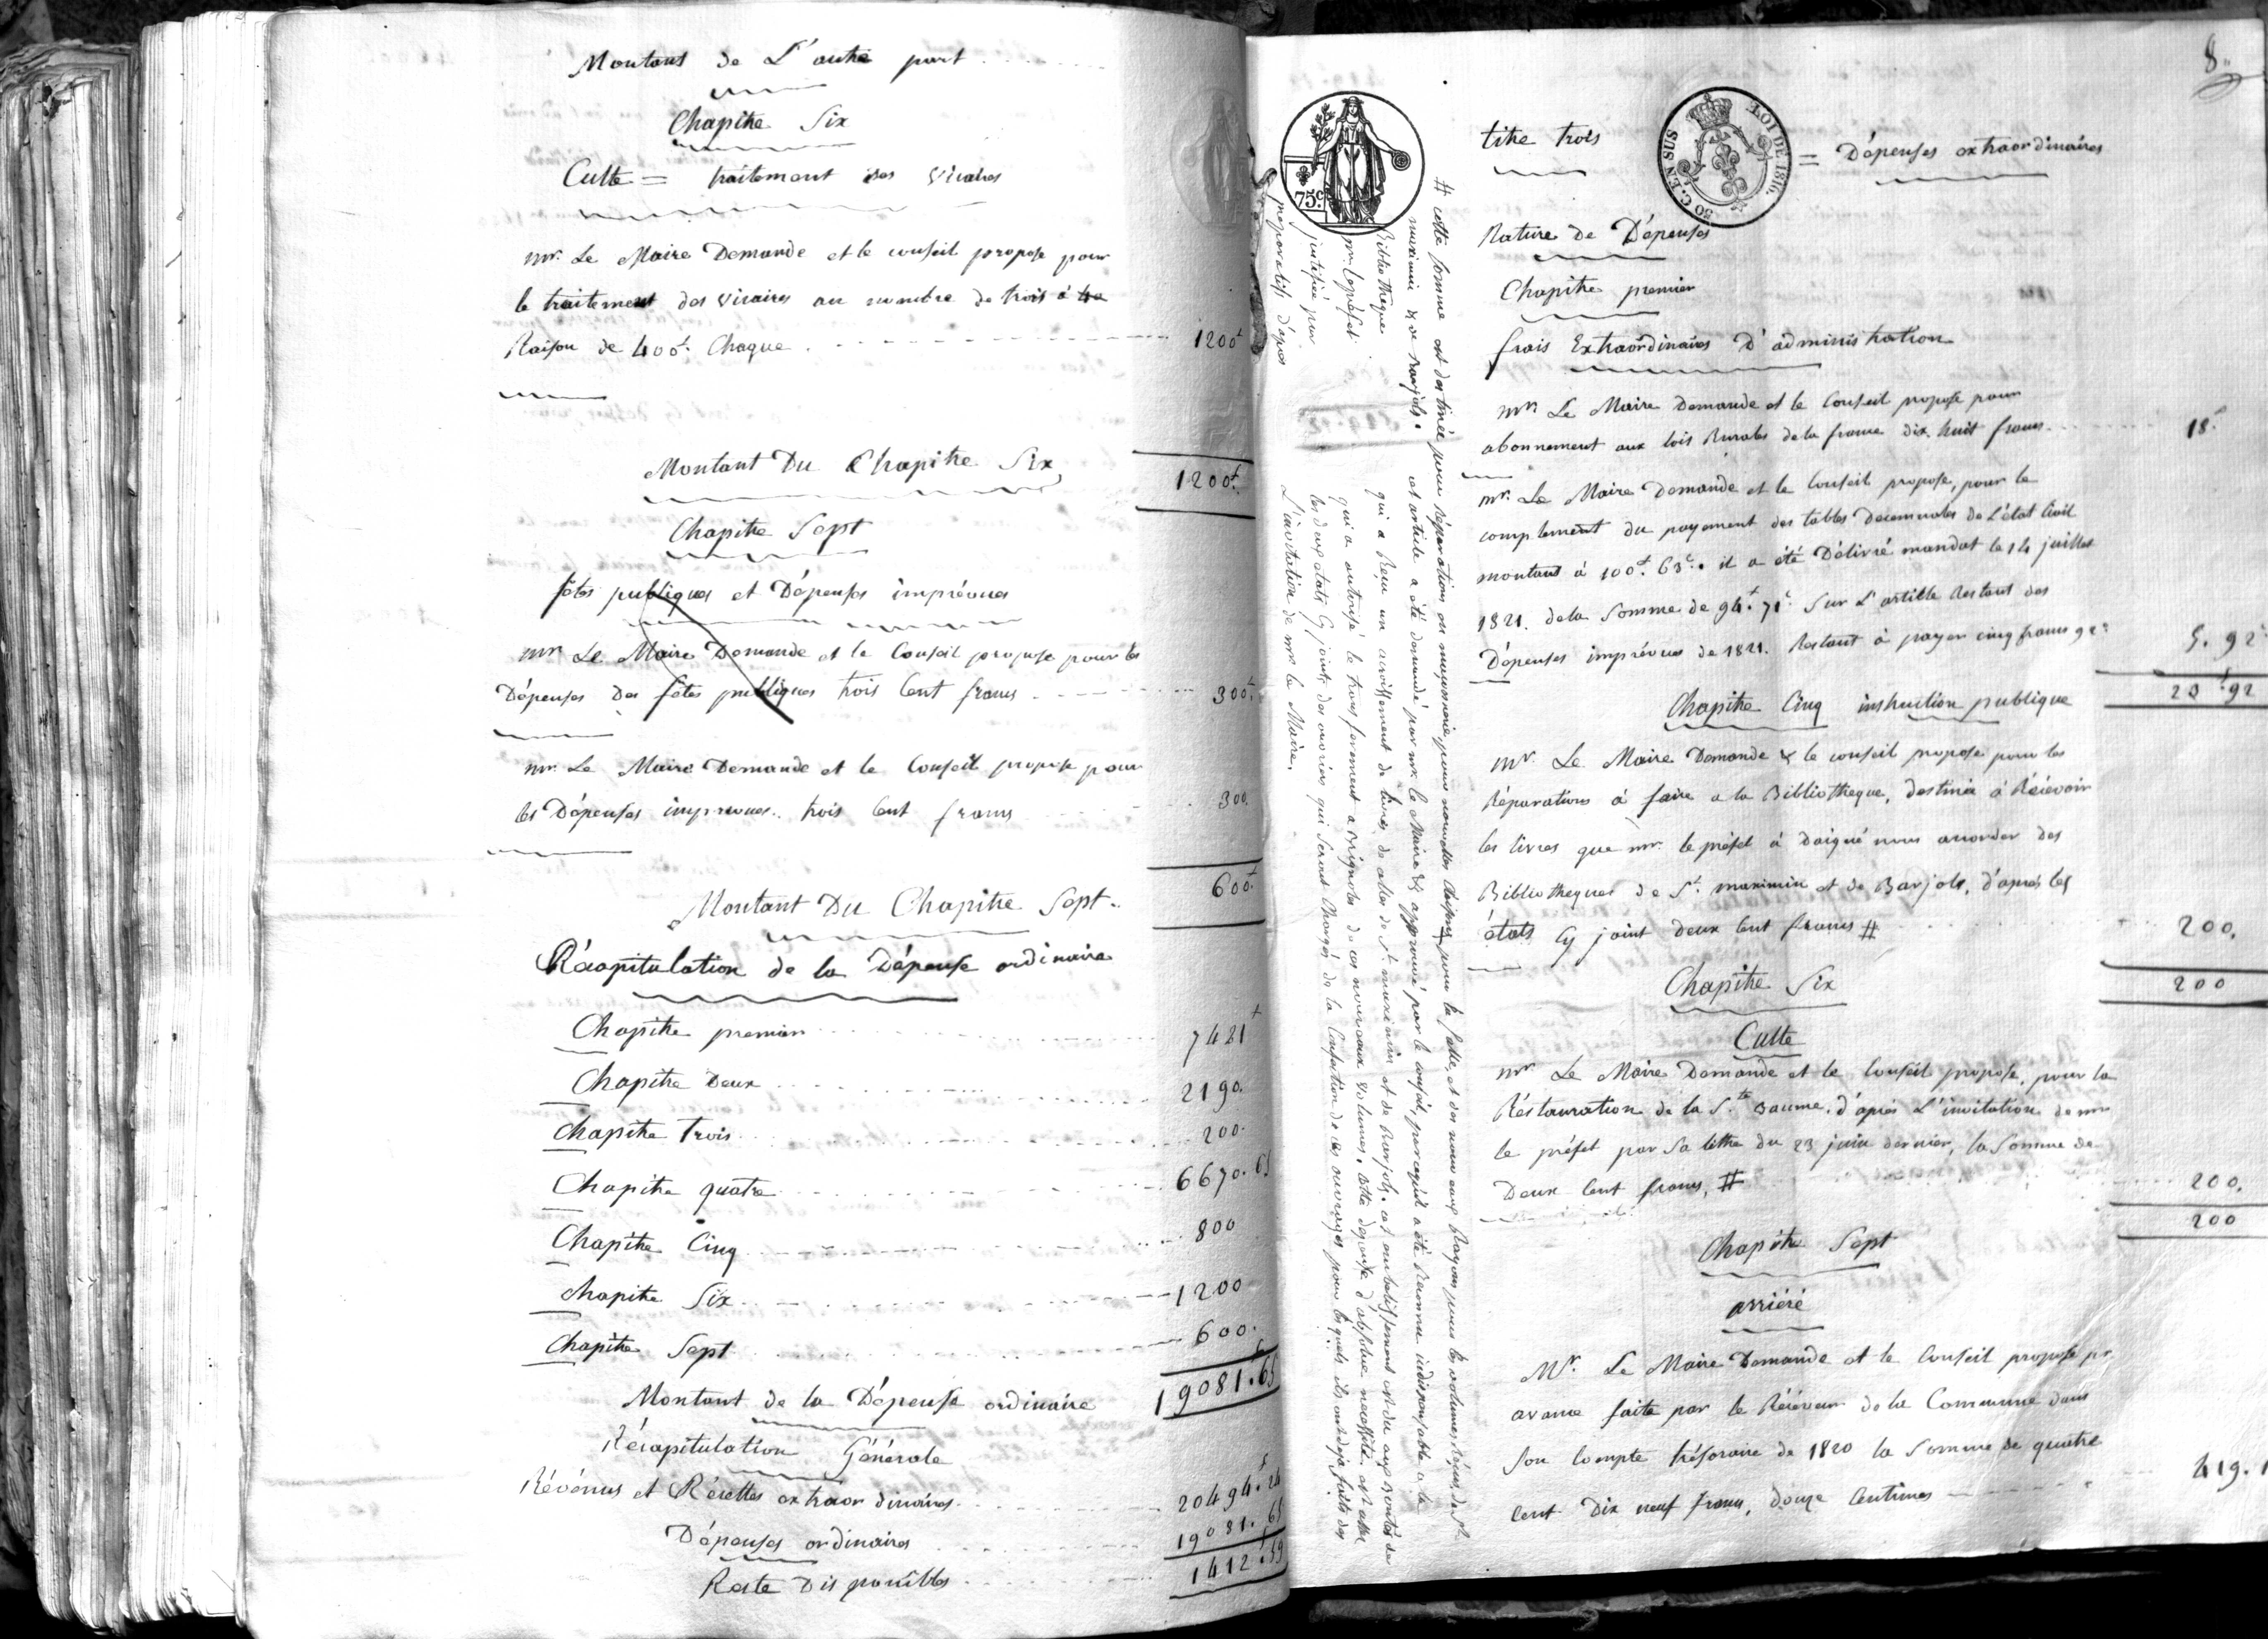 Montant de L'autre part
Chapitre Six
Culte = traitement des vicaires
mr. Le Maire Demande et le conseil propose pour
le traitement des vicaires au nombre de trois à
Raison de 400f. Chaque 1200f
Montant Du Chapitre Six 1200f.
Chapitre Sept
fêtes publiques et Dépenses imprévues
mr. Le Maire Demande et le Conseil propose pour les
Dépenses Des fêtes publiques trois Cent francs 300f.
mr. Le Maire Demande et le Conseil propose pour
les Dépenses imprevues.. trois Cent francs 300.
Montant Du Chapitre Sept.. 600f.
Récapitulation de la Dépense ordinaire
Chapitre premier 7421f
Chapitre Deux 2190.
Chapitre Trois 200.
Chapitre quatre 6670.65
Chapitre Cinq 800
Chapitre Six 1200
Chapitre Sept 600.
Montant de la Dépense ordinaire 19081.65
Récapitulation Générale
Révénus et Récettes extraordinaires 20494.24
Dépenses ordinaires 19081.65
Reste Disponibles 1412.59
8.
titre trois = Dépenses extraordinaires
75c.
LOI DE 1816.
50 C. EN SUS
Nature de Dépenses
Chapitre premier
frais Extraordinaires D'administration
mr. Le Maire Demande et le Conseil propose pour
abonnement aux lois Rurales de la france dix-huit francs 18f
mr. Le Maire Demande et le Conseil propose, pour le
complement du payement des tables Decennales de L'état Civil
montant à 100f. 63c. il a été Délivré mandat le 14 juillet
1821. de la Somme de 94f. 71c. Sur L'article Restant des
Dépenses imprévues de 1821. Restant à payer cinq francs 92c 5. 92
23f.92
Chapitre Cinq instruction publique
mr. Le Maire Demande & le conseil propose pour les
Réparations à faire a la Bibliotheque, destinée à Récévoir
les livres que mr. le préfet à daigné nous accorder des
Bibliotheques de St. maximin et de Barjols, d'après les
états Cy joint Deux Cent francs # 200.
200
Chapitre Six
Culte
mr. Le Maire Demande et le Conseil propose, pour la
Réstauration de la Ste. Baume, d'après L'invitation de mr
le préfet par Sa lettre du 23 juin dernier, la Somme de
Deux Cent francs, # 200.
200
Chapitre Sept
arriéré
Mr. Le Maire Demande et le Conseil propose pr.
avance faite par le Réceveur de la Commune dans
Son Compte trésoraire de 1820 la Somme de quatre
Cent Dix neuf francs, douze Centimes 419.1
# cette somme est destinée pour réparations en maçonnerie, pour la Salle, et des nouveaux Rayons pour les volumes de St.
maximin & de Barjols. cet article a été demandé par mr. le Maire & approuvé par le conseil, parcequ'il a été Reconnu indispensable a la
Bibliotheque qui a Reçu un accroissement de livres de celles de St. maximin et de Barjols. cet embelissement est du aux Bontés de
mr. Le préfet qui a autorisé le transferement a Brignoles de ces nouveaux volumes. cette dépense d'absolue necessité est assez
justifiée par les deux états Cy joints des ouvriers qui Seront Chargés de la Confection de ces ouvrages pour lesquels ils ont deja faits des
préparatifs d'après L'invitation de mr. le Maire.